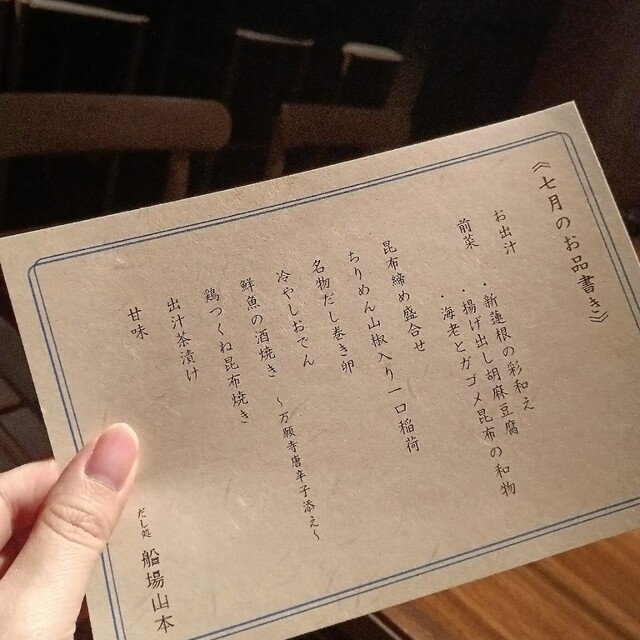 《七月のお品書き》
お出汁
前菜
・新蓮根の彩和え
・揚げ出し胡麻豆腐
・海老とガゴメ昆布の和物
昆布締め盛合せ
ちりめん山椒入り一口稲荷
名物だし巻き卵
冷やしおでん
鮮魚の酒焼き ～万願寺唐辛子添え～
鶏つくね昆布焼き
出汁茶漬け
甘味
だし処 船場山本